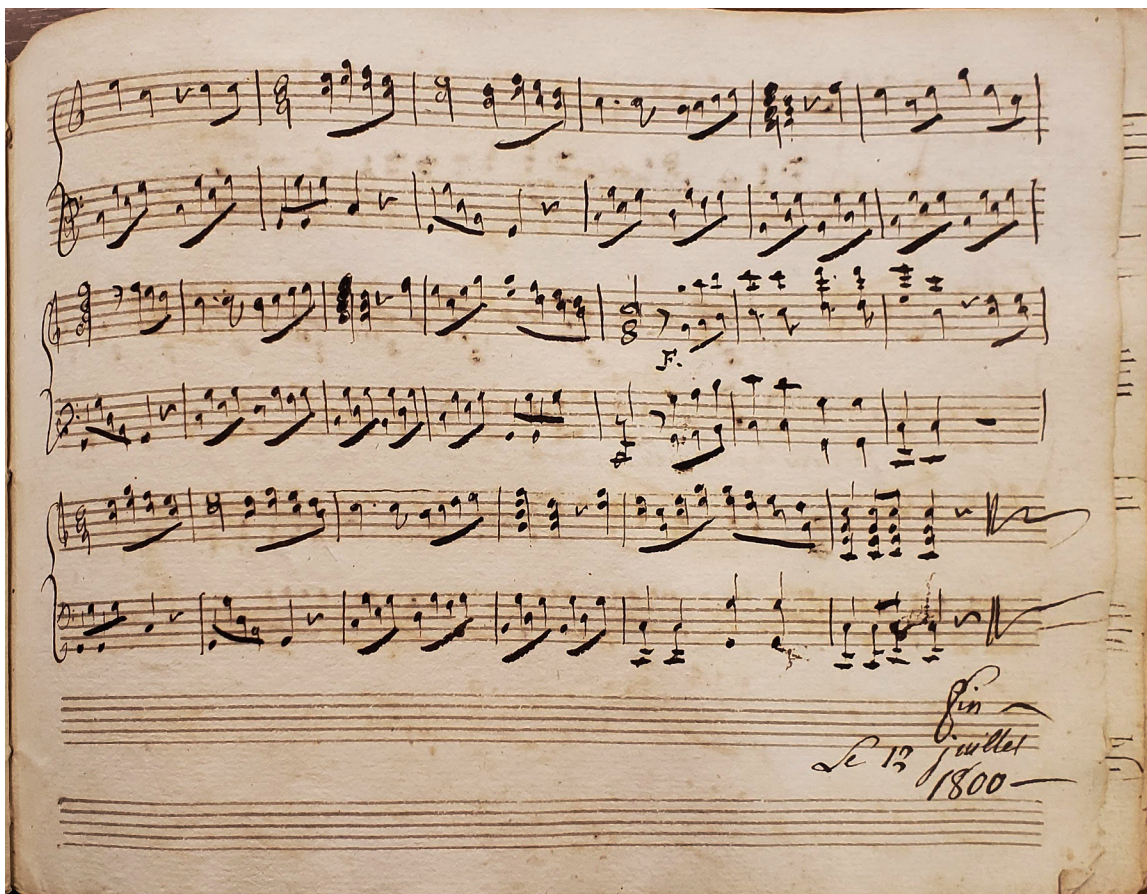 F.
Fin
Le 12 juillet
1800